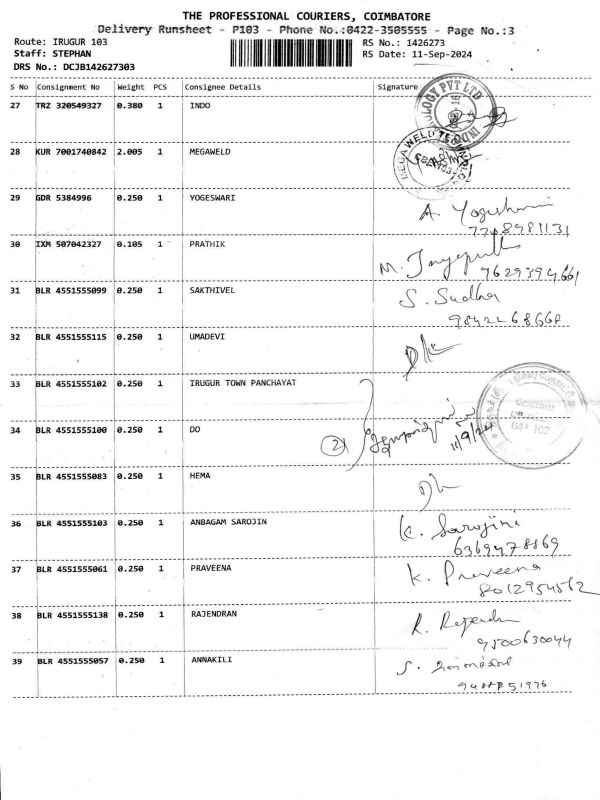 THE PROFESSIONAL COURIERS, COIMBATORE
Delivery Runsheet - P103 - Phone No.:0422-3505555 - Page No.:3
Route: IRUGUR 103 RS No.: 1426273
Staff: STEPHAN RS Date: 11-Sep-2024
DRS No.: DCJB142627303
S No Consignment No Weight PCS Consignee Details Signature
27 TRZ 320549327 0.380 1 INDO
28 KUR 7001740842 2.005 1 MEGAWELD
29 GDR 5384996 0.250 1 YOGESWARI
A Yogeshwari
30 IXM 507042327 0.105 1 PRATHIK
M.
9629394661
31 BLR 4551555099 0.250 1 SAKTHIVEL S. Sudha
32 BLR 4551555115 0.250 1 UMADEVI
33 BLR 4551555102 0.250 1 IRUGUR TOWN PANCHAYAT
34 BLR 4551555100 0.250 1 DO 2 11/9/24
35 BLR 4551555083 0.250 1 HEMA
36 BLR 4551555103 0.250 1 ANBAGAM SAROJIN K. Sarojini
37 BLR 4551555061 0.250 1 PRAVEENA K. Praveena
8012954512
38 BLR 4551555138 0.250 1 RAJENDRAN R.
9500630044
39 BLR 4551555057 0.250 1 ANNAKILI S.